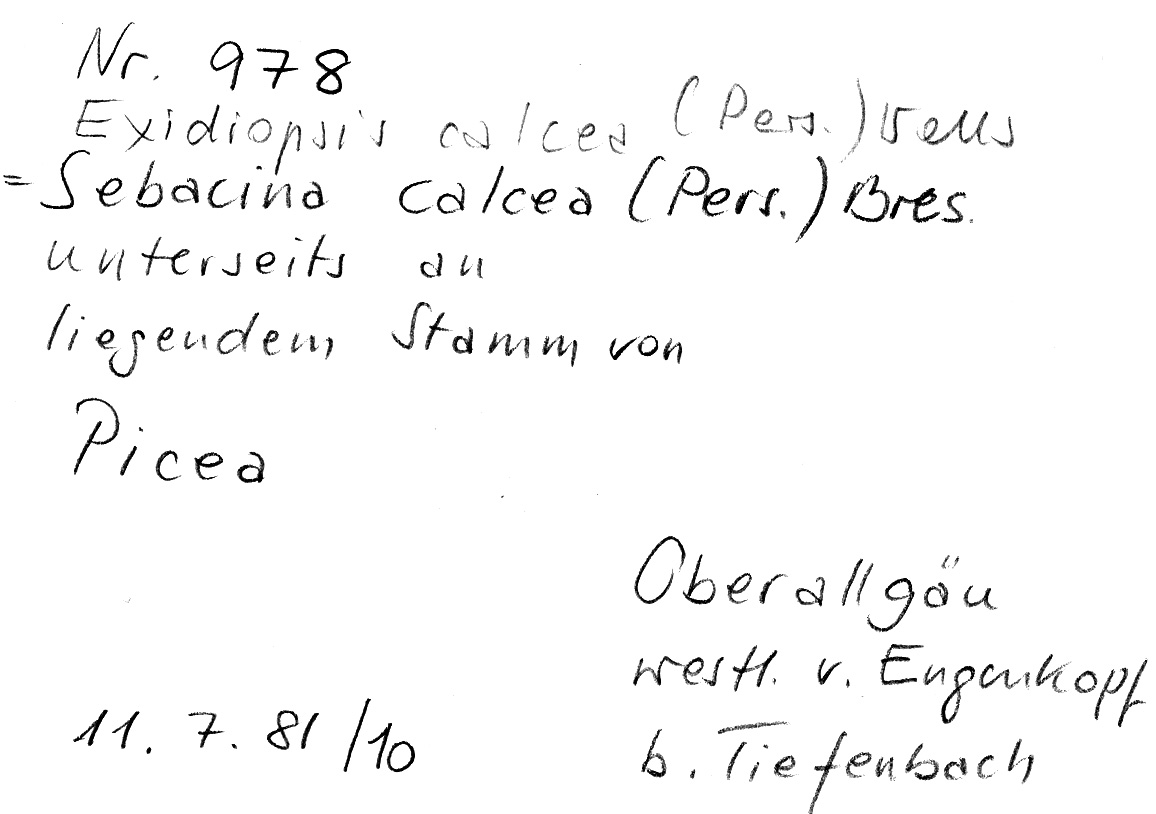 Nr. 978
Exidiopsis calcea (Pers.) Wells
= Sebacina calcea (Pers.) Bres.
unterseits an
liegendem Stamm von
Picea
Oberallgäu
westl. v. Engenkopf
11. 7. 81 /10
b. Tiefenbach